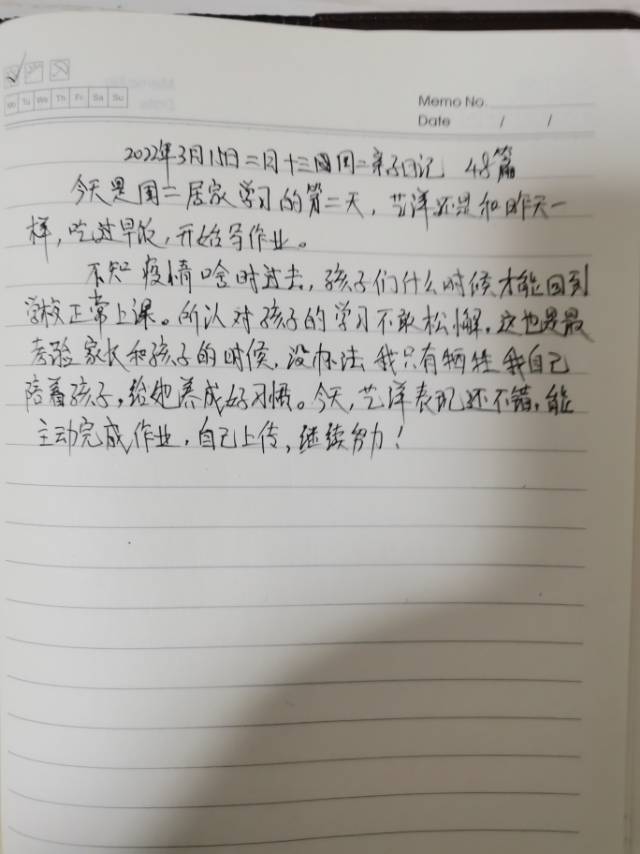 Mo Tu We Th Fr Sa Su
Memo No.
Date / /
2022年3月15日二月十三周二亲子日记 48篇
今天是周二居家学习的第二天，艺洋还是和昨天一
样，吃过早饭，开始写作业。
不知疫情啥时过去，孩子们什么时候才能回到
学校正常上课。所以对孩子的学习不敢松懈，这也是最
考验家长和孩子的时候，没办法我只有牺牲我自己
陪着孩子，给她养成好习惯。今天，艺洋表现还不错，能
主动完成作业，自己上传，继续努力！